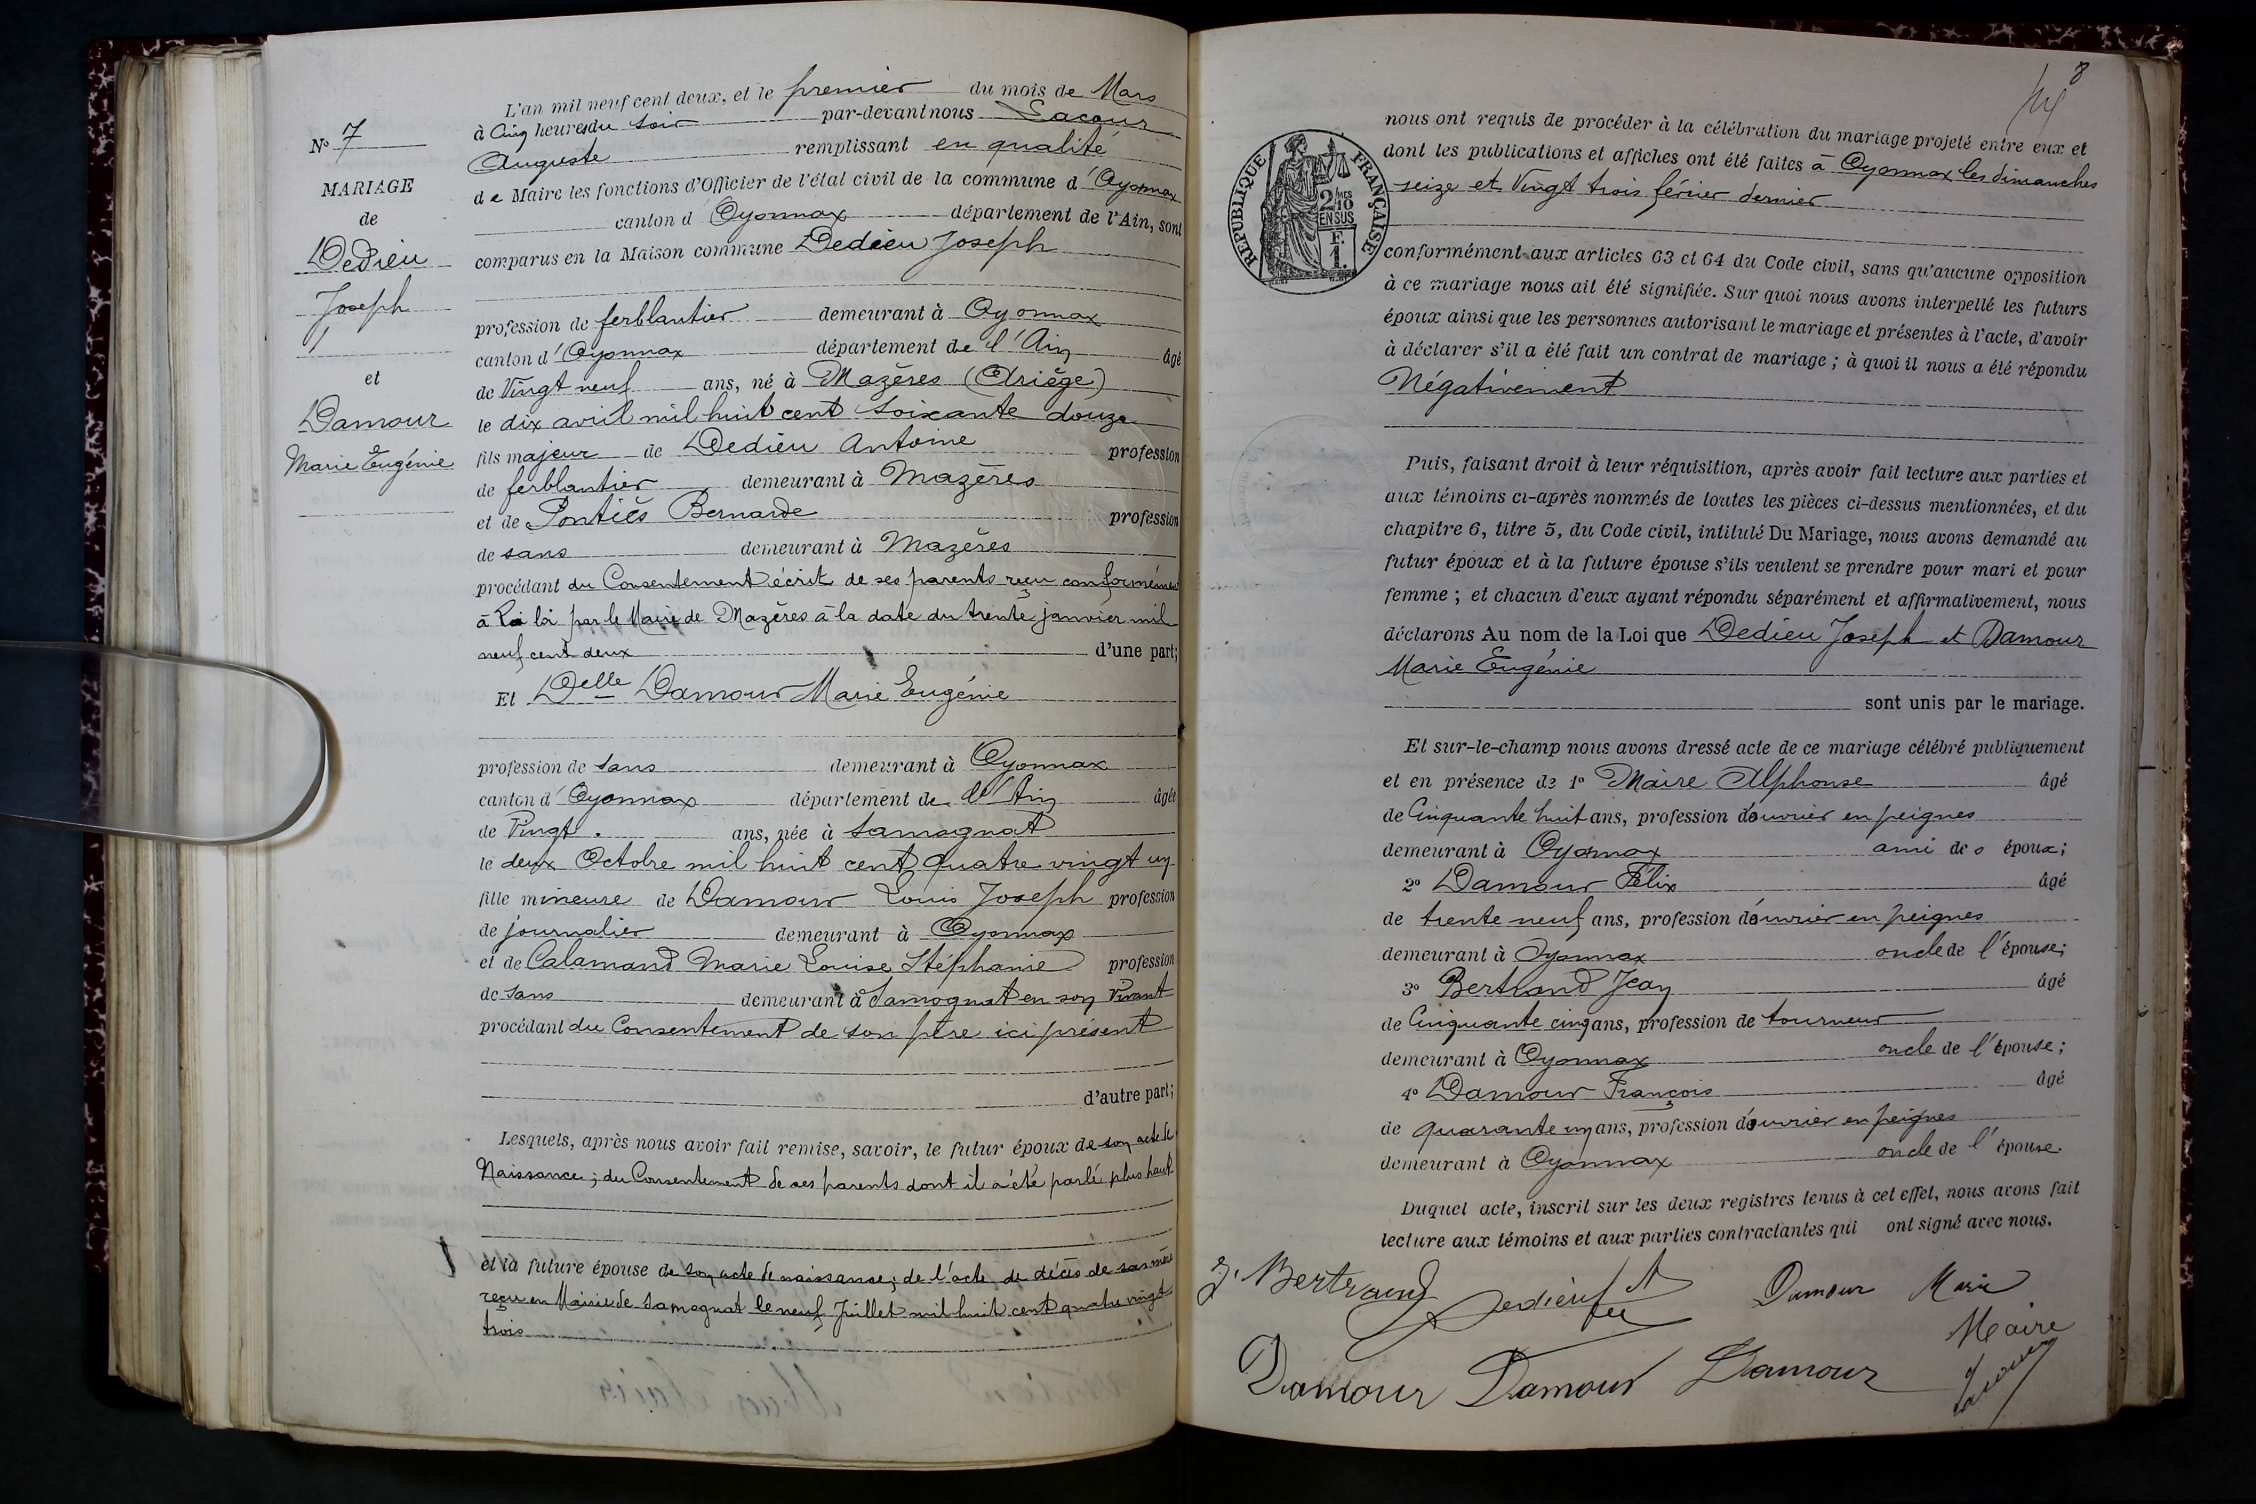 N° 7
MARIAGE
de
Dedieu
Joseph
et
Damour
Marie Eugénie
L'an mil neuf cent deux, et le premier du mois de Mars
à Cinq heures du soir par-devant nous Lacour
Auguste remplissant en qualité
de Maire les fonctions d'Officier de l'état civil de la commune d'Oyonnax
canton d'Oyonnax département de l'Ain, sont
comparus en la Maison commune Dedieu Joseph
profession de ferblantier demeurant à Oyonnax
canton d'Oyonnax département de l'Ain âgé
de Vingt neuf ans, né à Mazères (Ariège)
le dix avril mil huit cent soixante douze
fils majeur de Dedieu Antoine profession
de ferblantier demeurant à Mazères
et de Pontiès Bernarde profession
de sans demeurant à Mazères
procédant du Consentement écrit de ses parents reçu conformément
à la loi par le Maire de Mazères à la date du trente janvier mil
neuf cent deux d'une part;
Et Delle Damour Marie Eugénie
profession de sans demeurant à Oyonnax
canton d'Oyonnax département de l'Ain âgée
de Vingt . ans, née à Samognat
le deux Octobre mil huit cent quatre vingt un
fille mineure de Damour Louis Joseph profession
de journalier demeurant à Oyonnax
et de Calamand Marie Louise Stéphanie profession
de sans demeurant à Samognat en son Vivant
procédant du Consentement de son père ici présent
d'autre part;
Lesquels, après nous avoir fait remise, savoir, le futur époux de son acte de
Naissance; du Consentement de ses parents dont il a été parlé plus haut
et la future épouse de son acte de naissance; de l'acte de décès de sa mère
reçu en Mairie de Samognat le neuf Juillet mil huit cent quatre vingt
trois
8
REPUBLIQUE FRANÇAISE
2/10 EN SUS
F. 1.
nous ont requis de procéder à la célébration du mariage projeté entre eux et
dont les publications et affiches ont été faites à Oyonnax les dimanches
seize et Vingt trois février dernier
conformément aux articles 63 et 64 du Code civil, sans qu'aucune opposition
à ce mariage nous ait été signifiée. Sur quoi nous avons interpellé les futurs
époux ainsi que les personnes autorisant le mariage et présentes à l'acte, d'avoir
à déclarer s'il a été fait un contrat de mariage; à quoi il nous a été répondu
Négativement
Puis, faisant droit à leur réquisition, après avoir fait lecture aux parties et
aux témoins ci-après nommés de toutes les pièces ci-dessus mentionnées, et du
chapitre 6, titre 5, du Code civil, intitulé Du Mariage, nous avons demandé au
futur époux et à la future épouse s'ils veulent se prendre pour mari et pour
femme; et chacun d'eux ayant répondu séparément et affirmativement, nous
déclarons Au nom de la Loi que Dedieu Joseph et Damour
Marie Eugénie
sont unis par le mariage.
Et sur-le-champ nous avons dressé acte de ce mariage célébré publiquement
et en présence de 1° Maire Alphonse âgé
de Cinquante huit ans, profession d'ouvrier en peignes
demeurant à Oyonnax ami des époux;
2° Damour Félix âgé
de trente neuf ans, profession d'ouvrier en peignes
demeurant à Oyonnax oncle de l'épouse;
3° Bertrand Jean âgé
de Cinquante cinq ans, profession de tourneur
demeurant à Oyonnax oncle de l'épouse;
4° Damour François âgé
de quarante un ans, profession d'ouvrier en peignes
demeurant à Oyonnax oncle de l'épouse
Duquel acte, inscrit sur les deux registres tenus à cet effet, nous avons fait
lecture aux témoins et aux parties contractantes qui ont signé avec nous.
J. Bertrand Dedieu Damour Marie
Maire
Damour Damour Damour Lacour